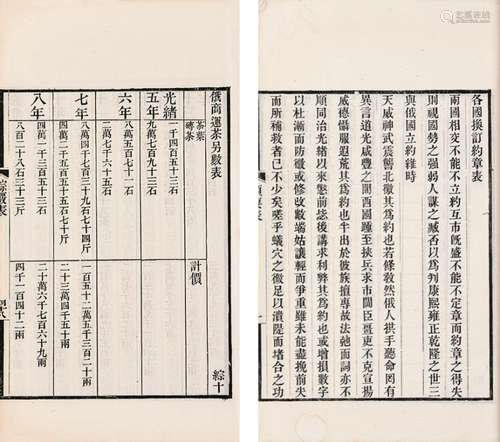 各國換訂約章表
兩國相交不能不立約互市旣盛不能不定章而約章之得失
則視國勢之强弱人謀之臧否以爲判康熙雍正乾隆之世三
與俄國立約維時
天威神武震讋北徼其爲約也若條敎然俄人拱手聽命罔有
異言道光咸豐之閒西國踵至挾兵求市閫臣畺吏不克宣揚
威德懾服遐荒其爲約也半出於彼族擅專故法弛而詞亦不
順同治光緒以來懲前毖後講求利弊其爲約也或增損數字
以杜漸而防 或修改數端姑讓輕而爭重雖未能盡挽前失
而所補救者已不少矣嗟乎蟻穴之微足以潰隄而堵合之功
俄商運茶另數表
茶葉
磚茶
計價
綜十
光緒
五年
一千四百五十三石
六年
八萬五百七十一石
七年
八萬四千七百三十九石七十四斤
四萬二千五百五十五石七十斤
一百五十二萬五千三百二十兩
二十三萬四千五十兩
八年
四萬一千三百五十三石
八百二十八石三十三斤
二十萬六千七百六十九兩
四千一百四十二兩
綜數表